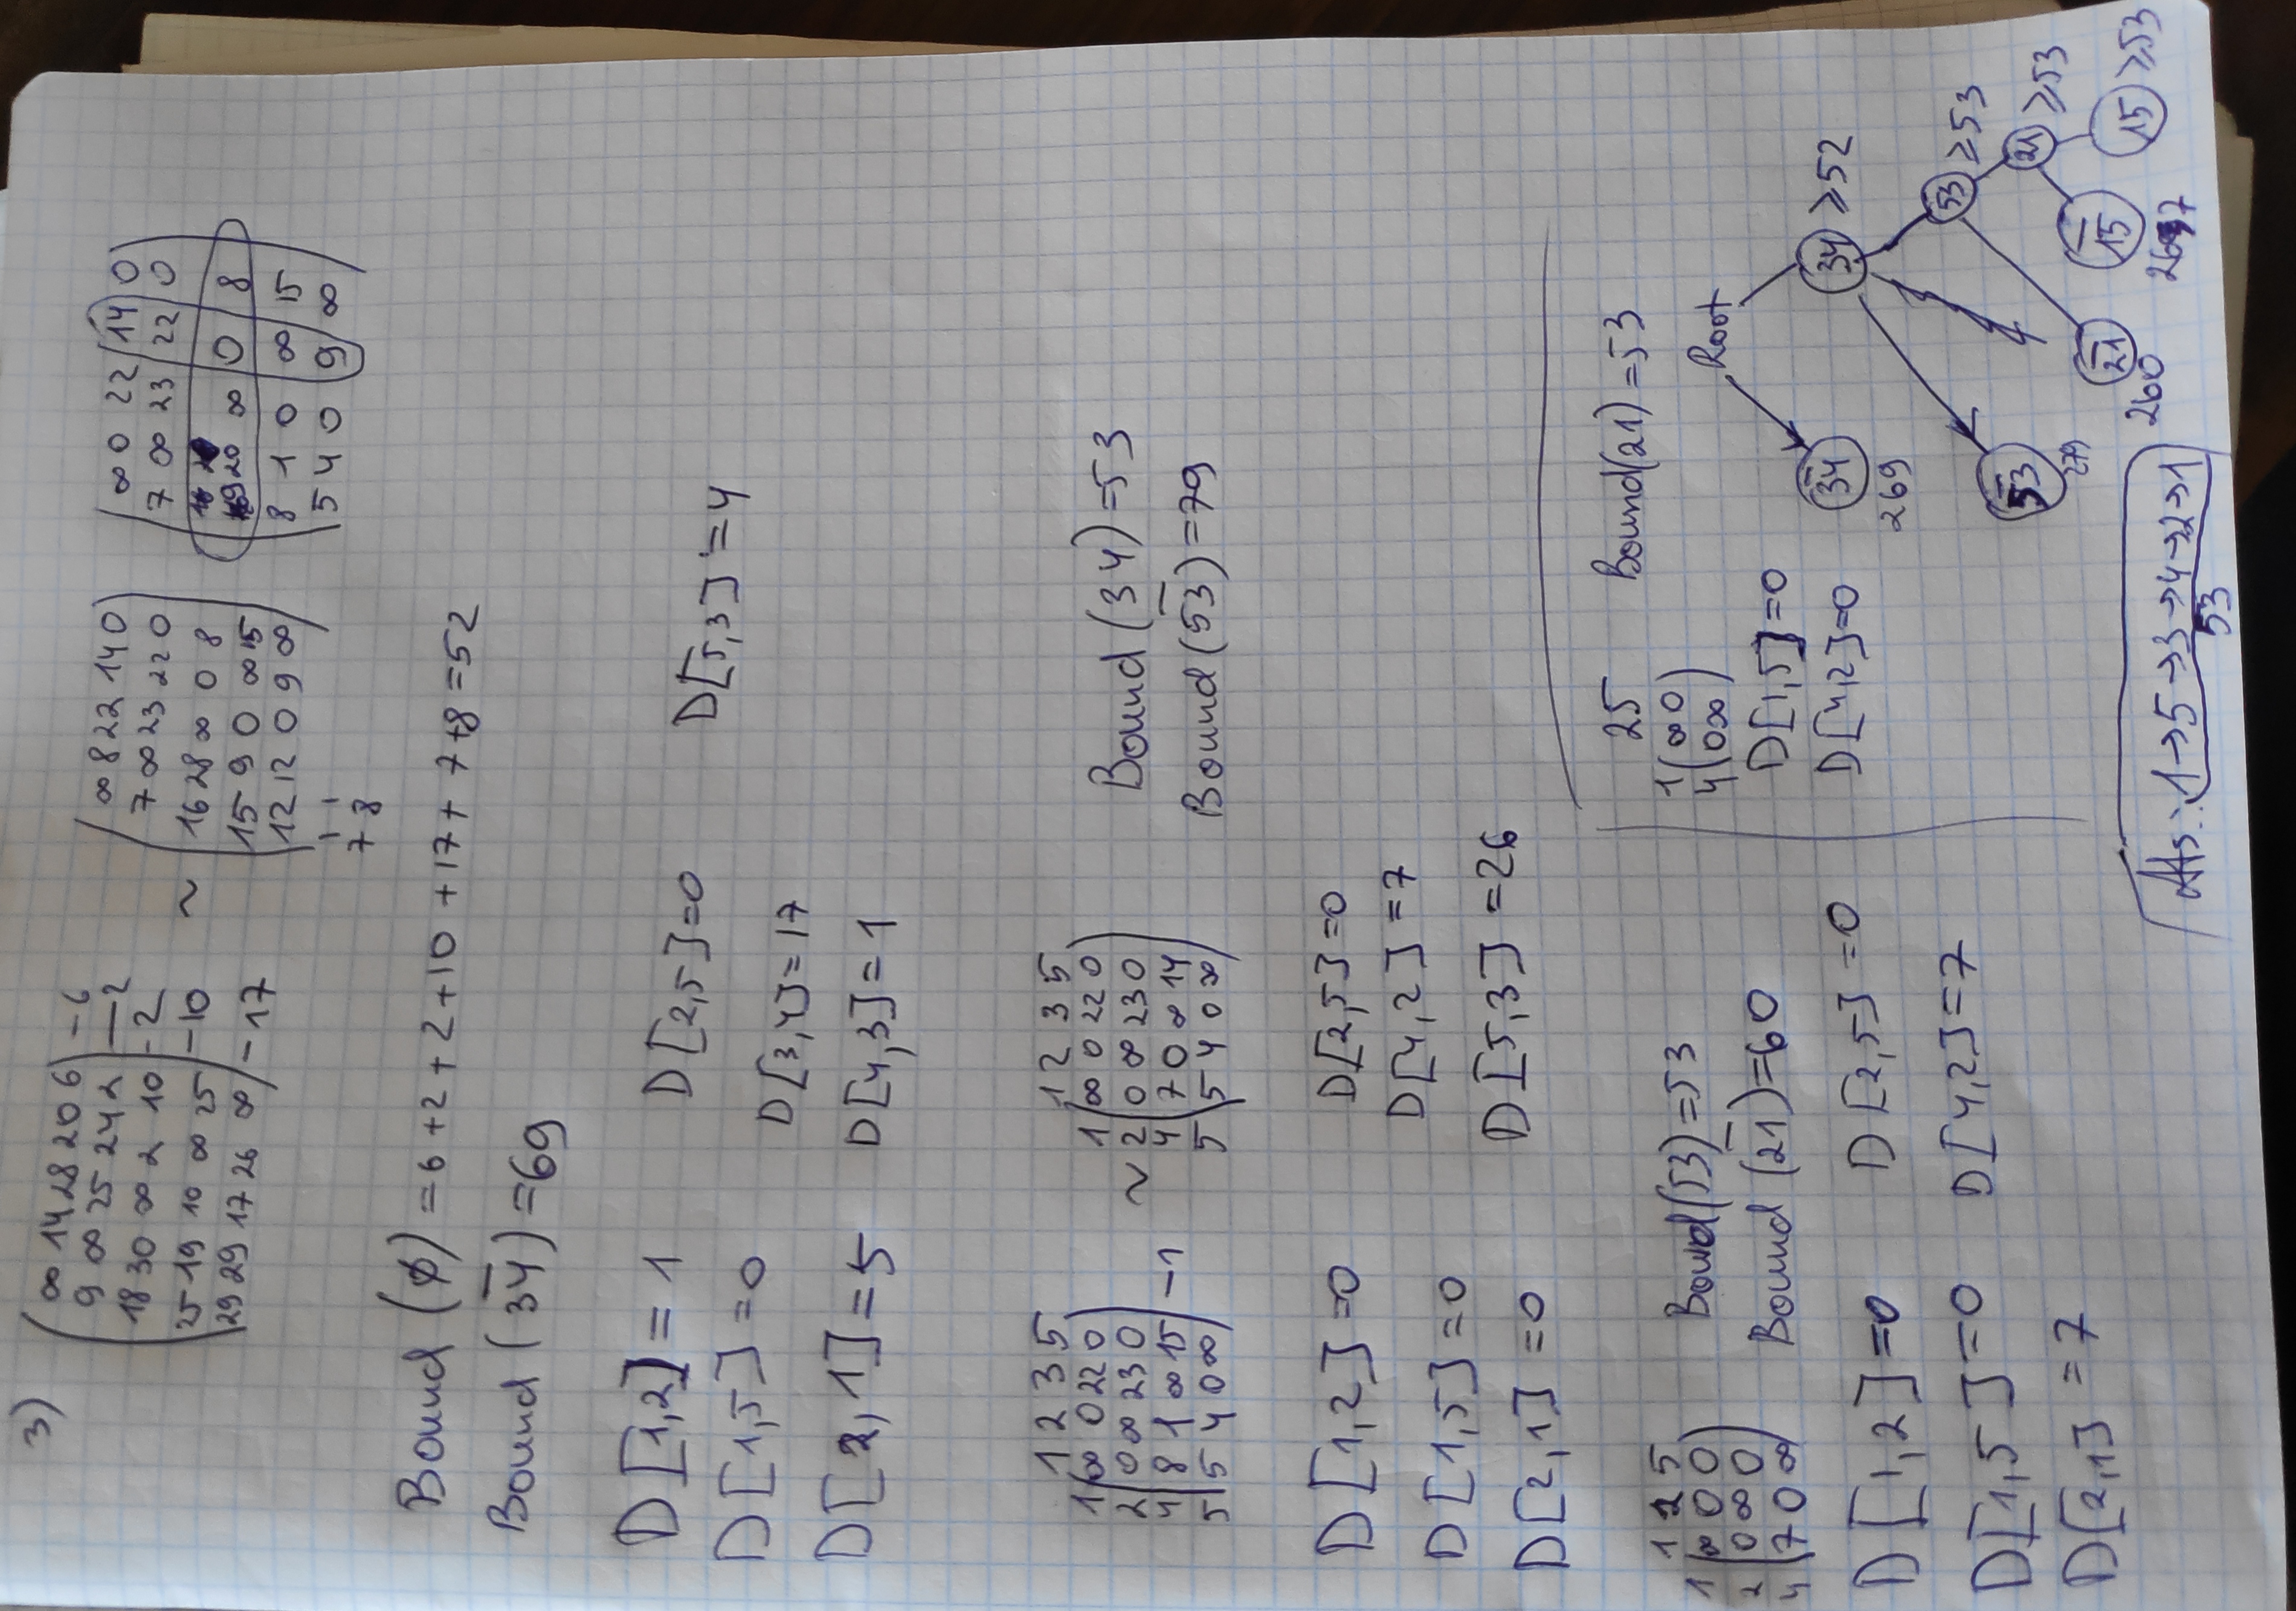 3)
∞ 14 28 20 6 -6
9 ∞ 25 24 2 -2
18 30 ∞ 2 10 -2
25 19 10 ∞ 25 -10
29 29 17 26 ∞ -17
~
∞ 8 22 14 0
7 ∞ 23 22 0
16 28 ∞ 0 8
15 9 0 ∞ 15
12 12 0 9 ∞
7 8
∞ 0 22 14 0
7 ∞ 23 22 0
9 20 ∞ 0 8
8 1 0 ∞ 15
5 4 0 9 ∞
Bound (∅) = 6+2+2+10+17+7+8=52
Bound (3̅4̅) = 69
D[1,2] = 1 D[2,5]=0 D[5,3]=4
D[1,5]=0 D[3,4]=17
D[2,1]=5 D[4,3]=1
1 2 3 5
1 ∞ 0 22 0
2 0 ∞ 23 0
4 8 1 ∞ 15 -1
5 5 4 0 ∞
~
1 2 3 5
1 ∞ 0 22 0
2 0 ∞ 23 0
4 7 0 ∞ 14
5 5 4 0 ∞
Bound (34)=53
Bound (5̅3̅)=79
D[1,2]=0 D[2,5]=0
D[1,5]=0 D[4,2]=7
D[2,1]=0 D[5,3]=26
1 2 5
1 ∞ 0 0
2 0 ∞ 0
4 7 0 ∞
Bound(53)=53
Bound (2̅1̅)=60
D[1,2]=0 D[2,5]=0
D[1,5]=0 D[4,2]=7
D[2,1]=7
2 5
1 ∞ 0
4 0 ∞
Bound(21)=53
D[1,5]=0
D[4,2]=0
Root
3̅4̅ 269
34 ≥52
5̅3̅ 279
53 ≥53
2̅1̅ 260
21 ≥53
1̅5̅
15 ≥53
1→5→3→4→2→1
53